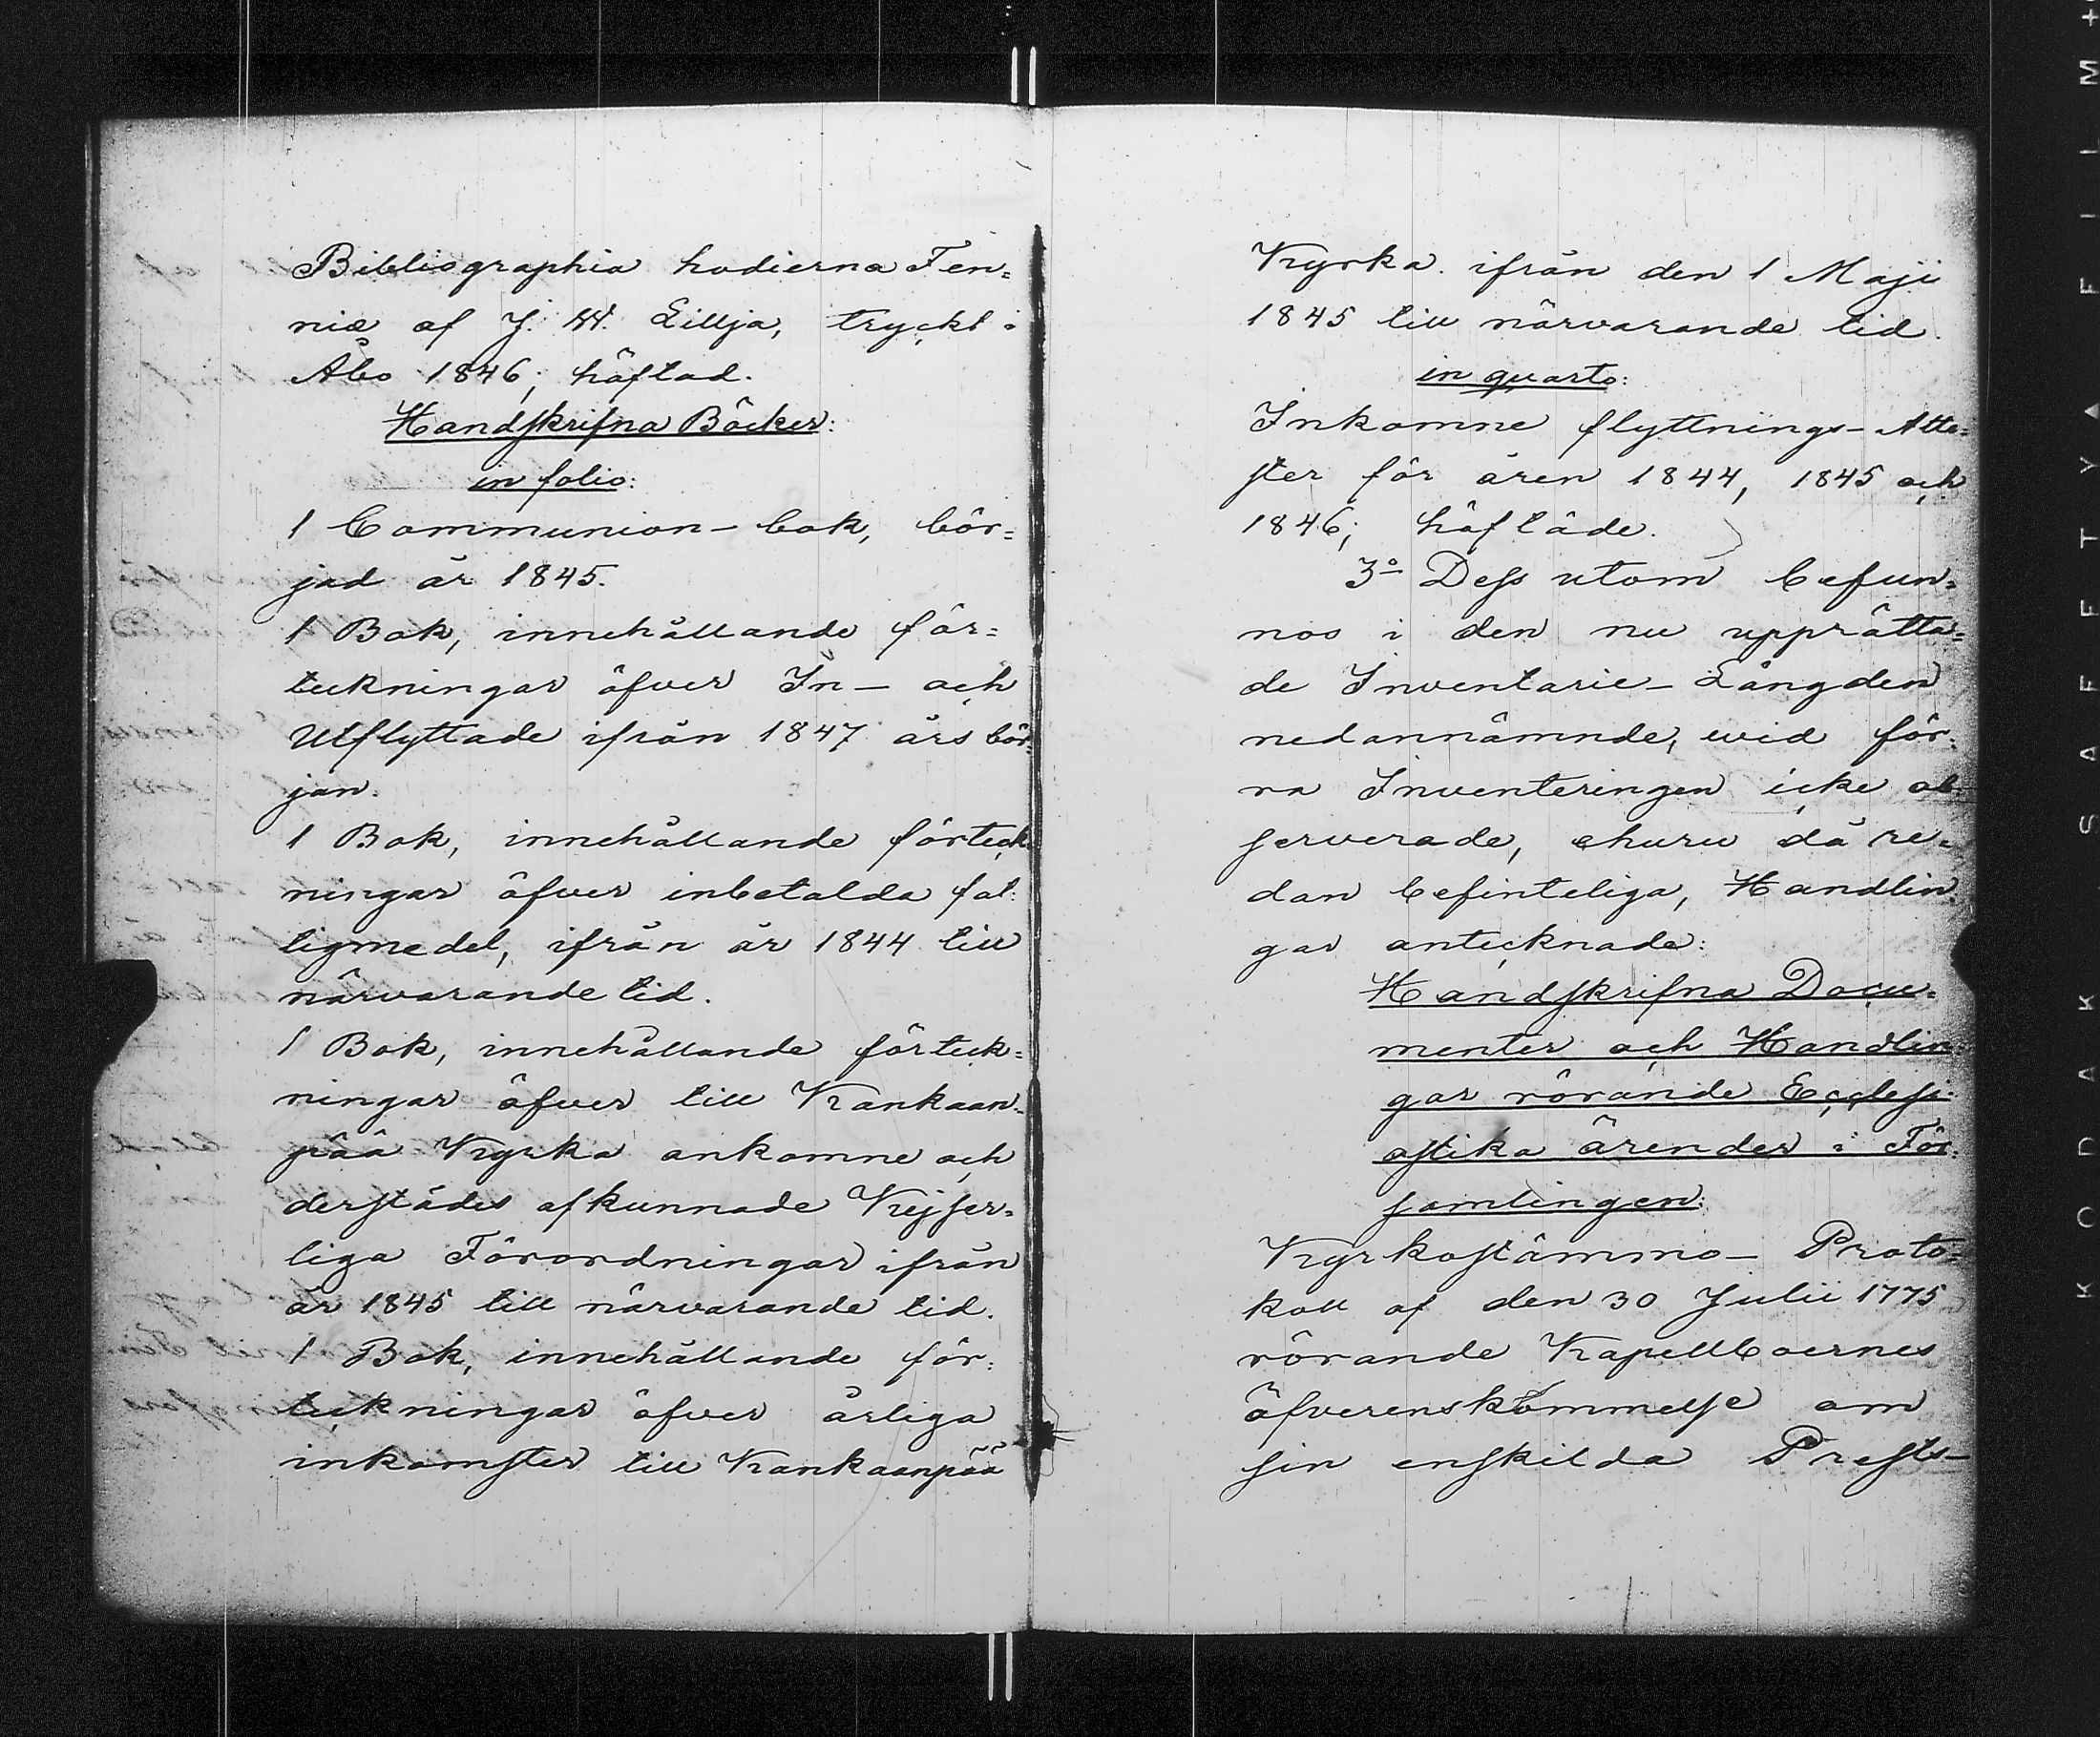 Bibliographia hodierna Fen=
niæ af J. W. Lillja, tryckt i
Åbo 1846; häftad.
Handskrifna Böcker:
in folio:
1 Communion-bok, bör=
jad år 1845.
1 Bok, innehållande för=
teckningar öfver In- och
Utflyttade ifrån 1847 års bör=
jan.
1 Bok, innehållande förteck
ningar öfver inbetalda fat=
tigmedel, ifrån år 1844 till
närvarande tid.
1 Bok, innehållande förteck=
ningar öfver till Kankaan=
pää Kyrka ankomne och
derstädes afkunnade Kejser=
liga Förordningar ifrån
år 1845 till närvarande tid.
1 Bok, innehållande för=
teckningar öfver årliga
inkomster till Kankaanpää
Kyrka ifrån den 1 Maji
1845 till närvarande tid.
in quarto:
Inkomne flyttnings-Atte=
ster för åren 1844, 1845 och
1846; häftade.
3o Dess utom befun=
nos i den nu upprätta=
de Inventarie-Längden
nedannämnde, wid för=
ra Inventeringen icke ob=
serverade, ehuru då re=
dan befinteliga, Handlin=
gar antecknade:
Handskrifna Docu=
menter och Handlin=
gar rörande Ecclesi=
astika ärender i För=
samlingen:
Kyrkostämmo-Proto=
koll af den 30 Julii 1775
rörande Kapellboernes
öfverenskommelse om
sin enskilda Prests-
KODAK SAFETY FILM